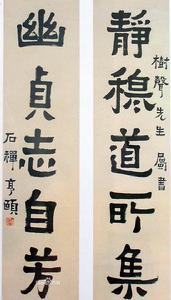 靜穆道所集
樹聲先生屬書
幽貞志自芳
石禪亨頤